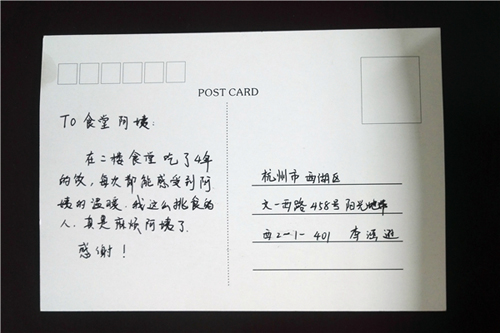 POST CARD
TO 食堂阿姨:
在二楼食堂吃了4年
的饭,每次都能感受到阿
姨的温暖。我这么挑食的
人,真是麻烦阿姨了.
感谢!
杭州市西湖区
文一西路 458号 阳光地
西2-1-401 李